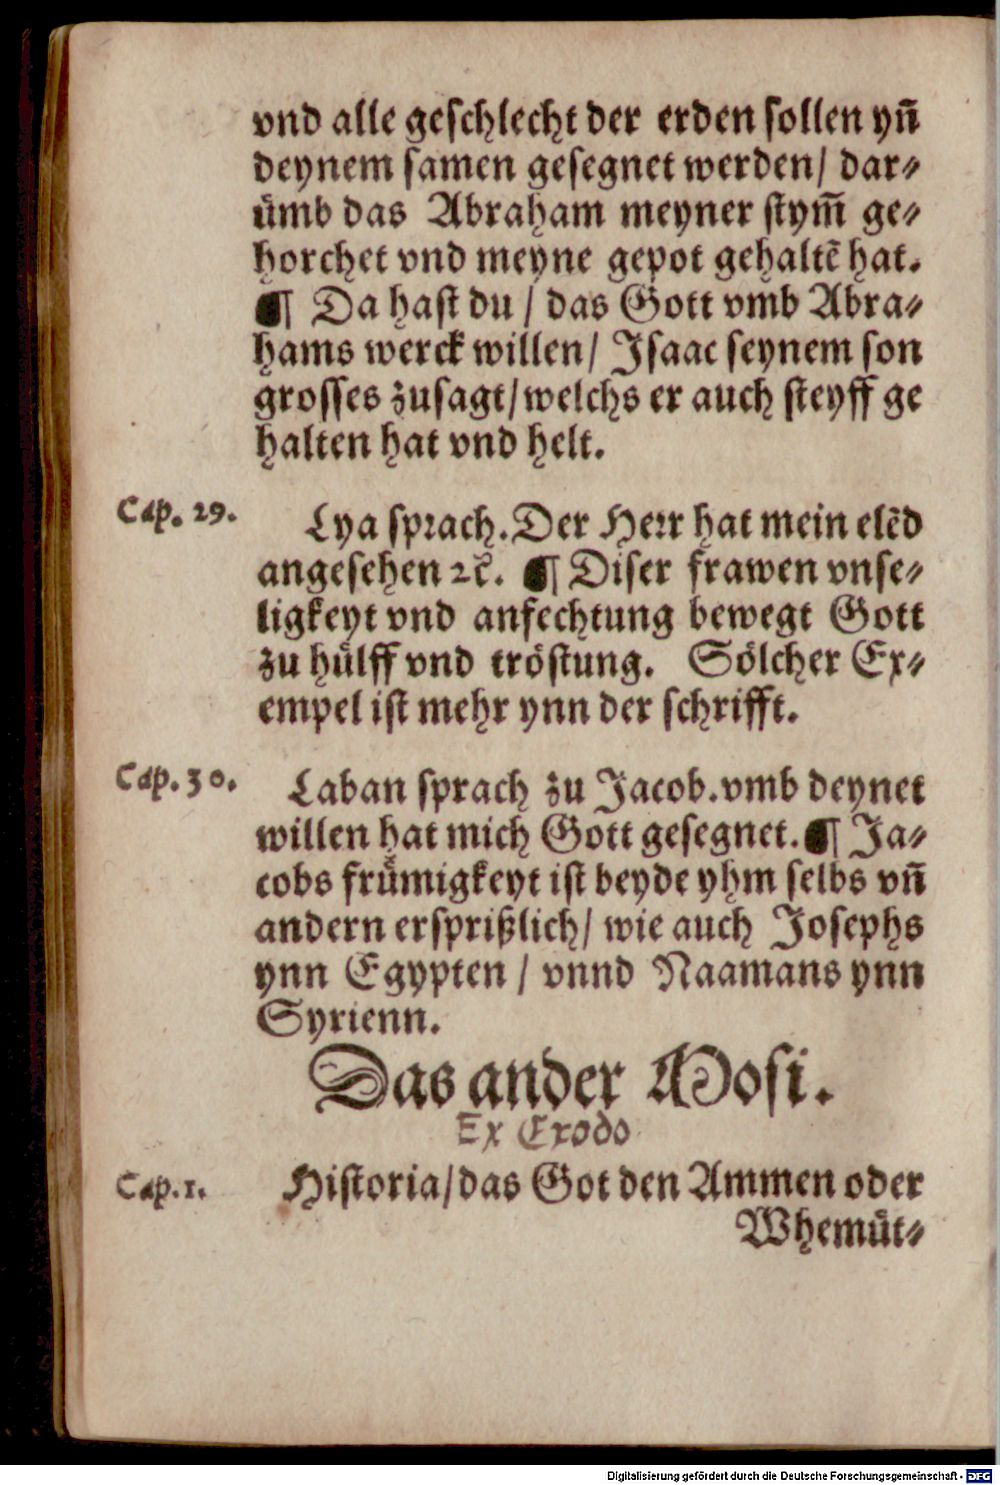 vnd alle geschlecht der erden sollen yn̄
deynem samen gesegnet werden/ dar⸗
ümb das Abraham meyner stym̄ ge⸗
horchet vnd meyne gepot gehaltē hat.
¶ Da hast du / das Gott vmb Abra⸗
hams werck willen/ Isaac seynem son
grosses zusagt/welchs er auch steyff ge
halten hat vnd helt.
Cap. 29.
Lya sprach. Der Herr hat mein elēd
angesehen ꝛc̄. ¶ Diser frawen vnse⸗
ligkeyt vnd anfechtung bewegt Gott
zu hülff vnd tröstung. Sölcher Ex⸗
empel ist mehr ynn der schrifft.
Cap. 30.
Laban sprach zu Jacob. vmb deynet
willen hat mich Gott gesegnet. ¶ Ja⸗
cobs frümigkeyt ist beyde yhm selbs vn̄
andern ersprißlich/ wie auch Josephs
ynn Egypten / vnnd Naamans ynn
Syrienn.
Das ander Mosi.
Ex Exodo
Cap. 1.
Historia/das Got den Ammen oder
Whemüt⸗
Digitalisierung gefördert durch die Deutsche Forschungsgemeinschaft - DFG